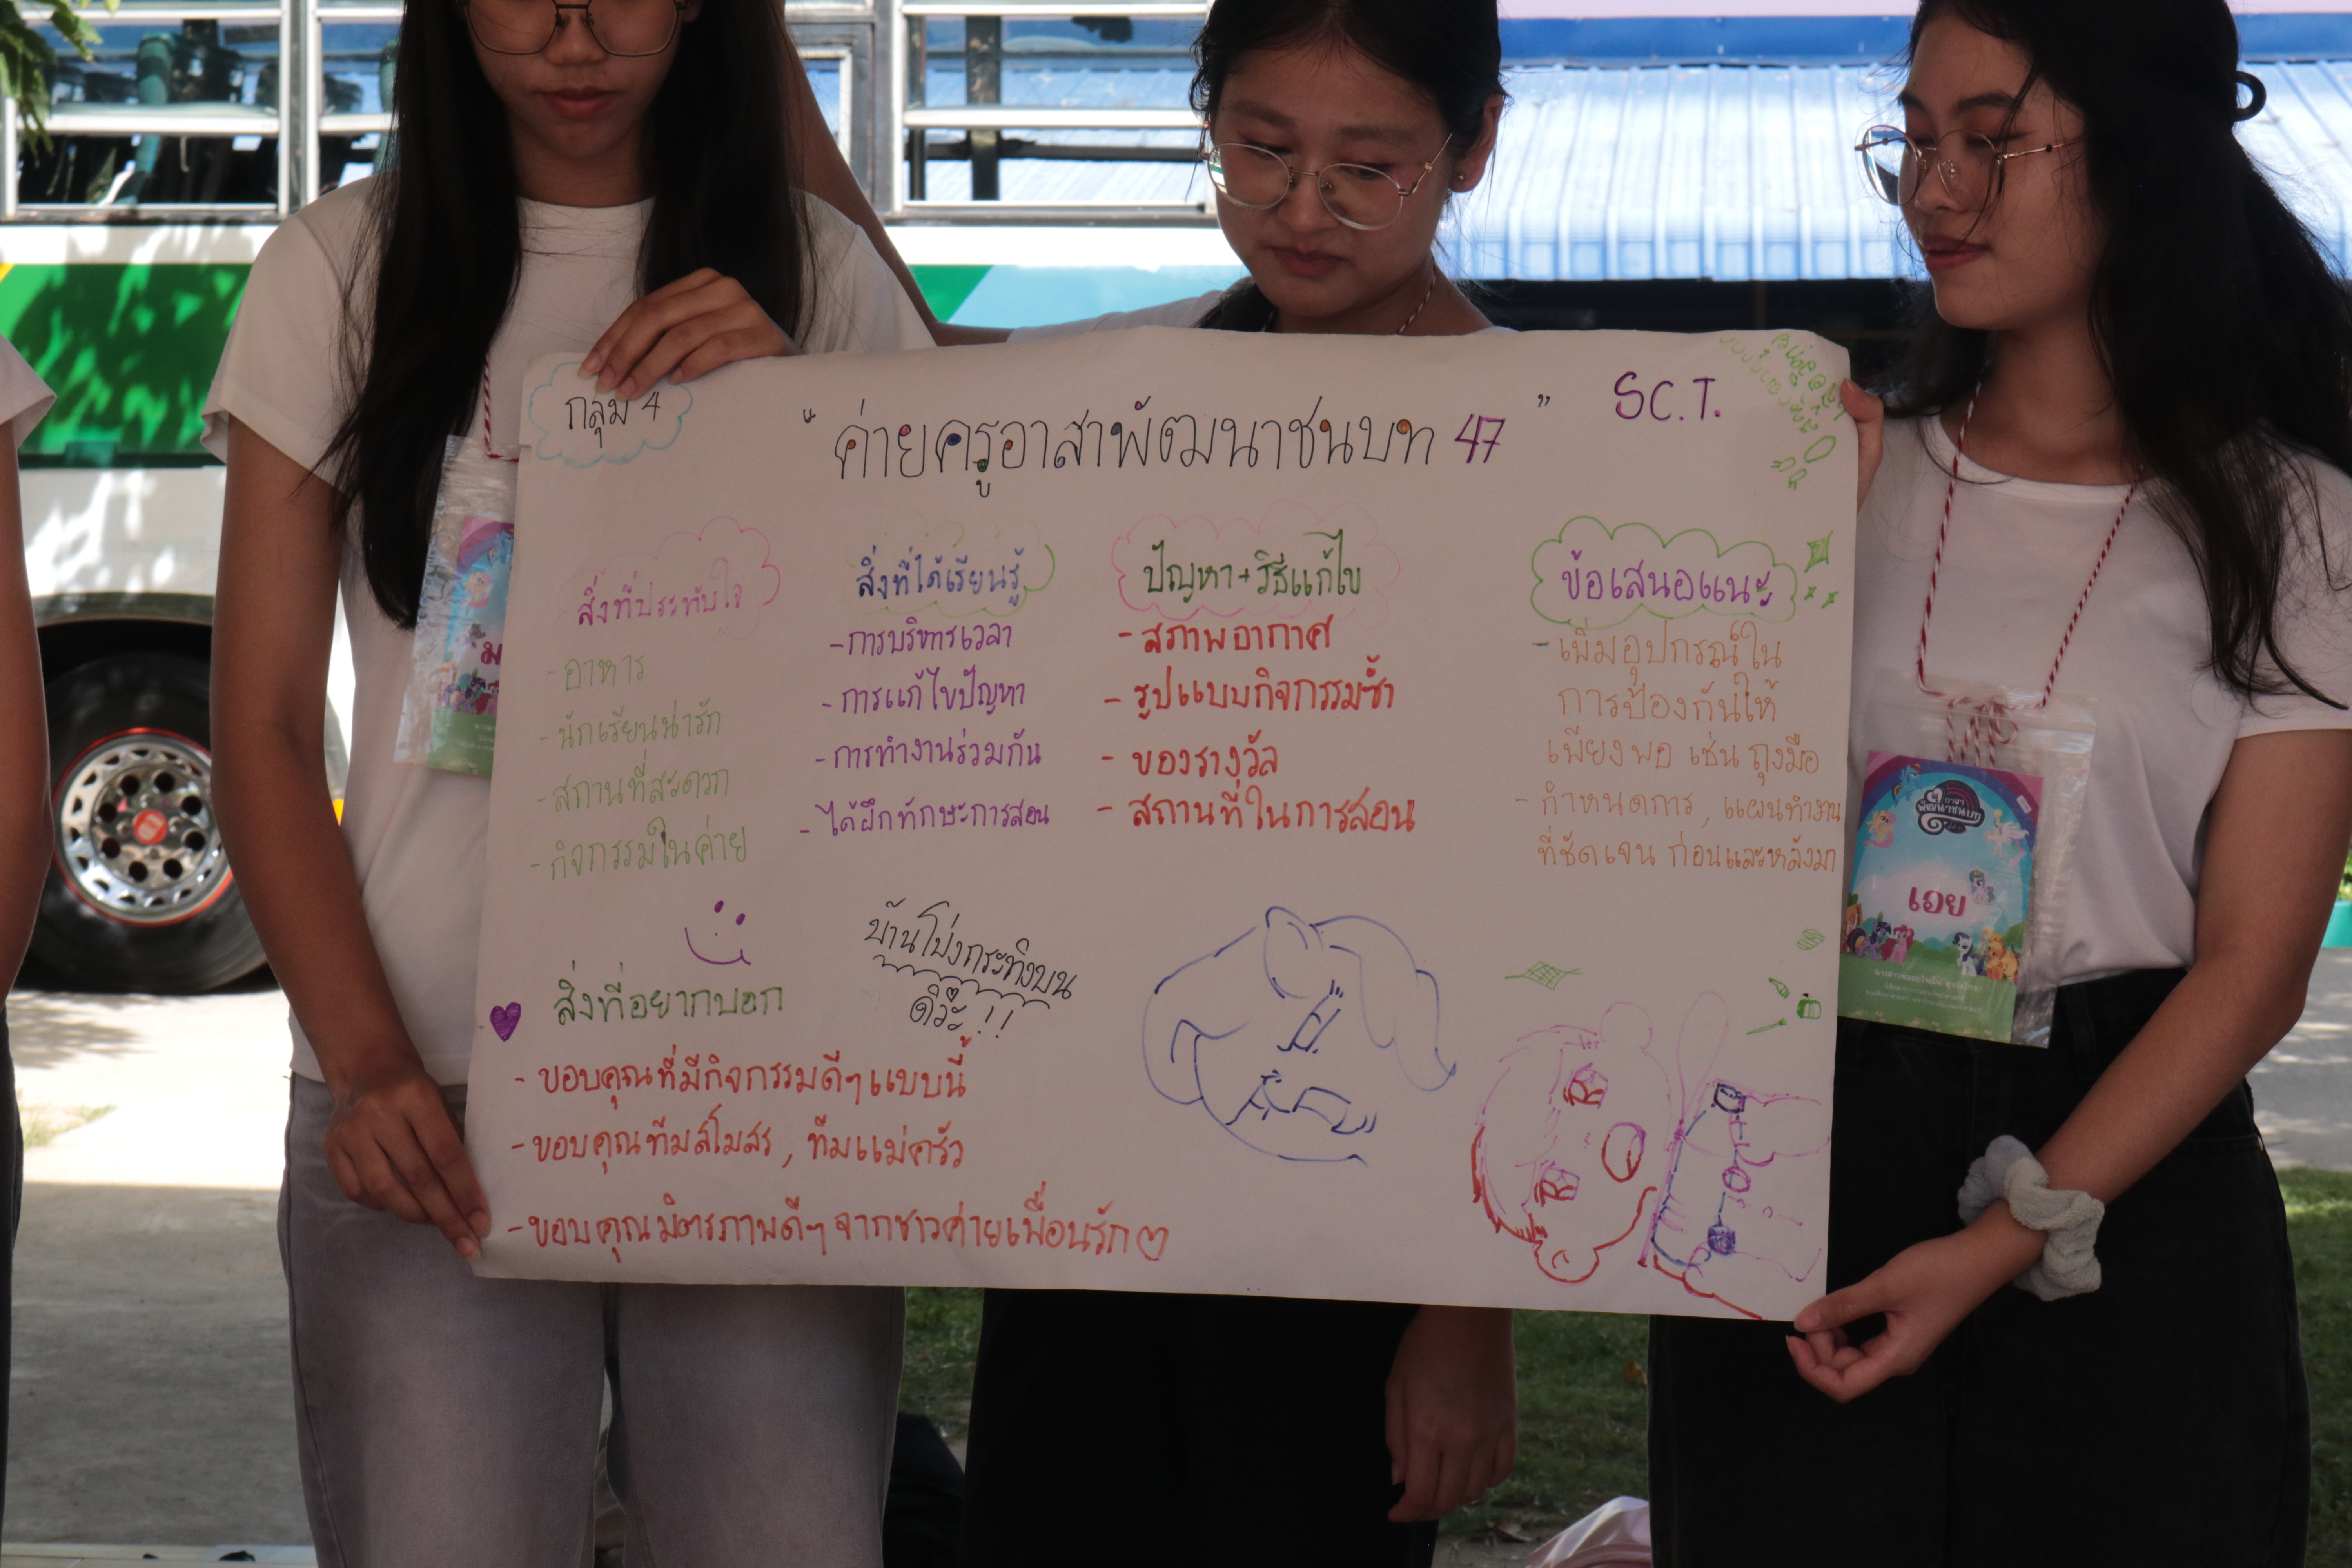 กลุ่ม 4
“ ค่ายครูอาสาพัฒนาชนบท 47 ”
SC.T.
สิ่งที่ประทับใจ
- อาหาร
- นักเรียนน่ารัก
- สถานที่สะดวก
- กิจกรรมในค่าย
สิ่งที่ได้เรียนรู้
- การบริหารเวลา
- การแก้ไขปัญหา
- การทำงานร่วมกัน
- ได้ฝึกทักษะการสอน
ปัญหา + วิธีแก้ไข
- สภาพอากาศ
- รูปแบบกิจกรรมซ้ำ
- ของรางวัล
- สถานที่ในการสอน
ข้อเสนอแนะ
- เพิ่มอุปกรณ์ใน
การป้องกันให้
เพียงพอ เช่น ถุงมือ
- กำหนดการ, แผนทำงาน
ที่ชัดเจน ก่อนและหลังมา
สิ่งที่อยากบอก
- ขอบคุณที่มีกิจกรรมดีๆแบบนี้
- ขอบคุณทีมสโมสร, ทีมแม่ครัว
- ขอบคุณมิตรภาพดีๆ จากชาวค่ายเพื่อนรัก
บ้านโป่งกระทิงบน
ดีว๊ะ!!
อาสา
พัฒนาชนบท
เอย